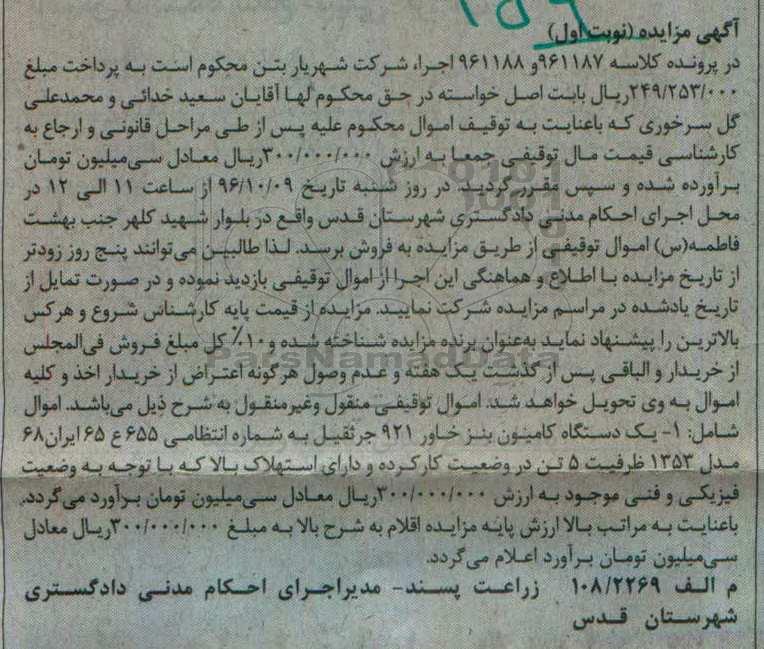 آگهی مزایده (نوبت اول)
در پرونده کلاسه ۹۶۱۱۸۷و ۹۶۱۱۸۸ اجرا، شرکت شهریار بتن محکوم است به پرداخت مبلغ
۲۴۹/۲۵۳/۰۰۰ریال بابت اصل خواسته در حق محکوم لها آقایان سعید خدائی و محمدعلی
گل سرخوری که باعنایت به توقیف اموال محکوم علیه پس از طی مراحل قانونی و ارجاع به
کارشناسی قیمت مال توقیفی جمعا به ارزش ۳۰۰/۰۰۰/۰۰۰ریال معادل سی‌میلیون تومان
برآورده شده و سپس مقرر گردید. در روز شنبه تاریخ ۹۶/۱۰/۰۹ از ساعت ۱۱ الی ۱۲ در
محل اجرای احکام مدنی دادگستری شهرستان قدس واقع در بلوار شهید کلهر جنب بهشت
فاطمه(س) اموال توقیفی از طریق مزایده به فروش برسد. لذا طالبین می‌توانند پنج روز زودتر
از تاریخ مزایده با اطلاع و هماهنگی این اجرا از اموال توقیفی بازدید نموده و در صورت تمایل از
تاریخ یادشده در مراسم مزایده شرکت نمایید. مزایده از قیمت پایه کارشناس شروع و هرکس
بالاترین را پیشنهاد نماید به‌عنوان برنده مزایده شناخته شده و ۱۰٪ کل مبلغ فروش فی‌المجلس
از خریدار و الباقی پس از گذشت یک هفته و عدم وصول هرگونه اعتراض از خریدار اخذ و کلیه
اموال به وی تحویل خواهد شد. اموال توقیفی منقول وغیرمنقول به شرح ذیل می‌باشد. اموال
شامل: ۱- یک دستگاه کامیون بنز خاور ۹۲۱ جرثقیل به شماره انتظامی ۶۵۵ ع ۶۵ ایران۶۸
مدل ۱۳۵۳ ظرفیت ۵ تن در وضعیت کارکرده و دارای استهلاک بالا که با توجه به وضعیت
فیزیکی و فنی موجود به ارزش ۳۰۰/۰۰۰/۰۰۰ریال معادل سی‌میلیون تومان برآورد می‌گردد.
باعنایت به مراتب بالا ارزش پایه مزایده اقلام به شرح بالا به مبلغ ۳۰۰/۰۰۰/۰۰۰ریال معادل
سی‌میلیون تومان برآورد اعلام می‌گردد.
م الف ۱۰۸/۲۲۶۹ زراعت پسند- مدیراجرای احکام مدنی دادگستری
شهرستان قدس
ParsNamadData